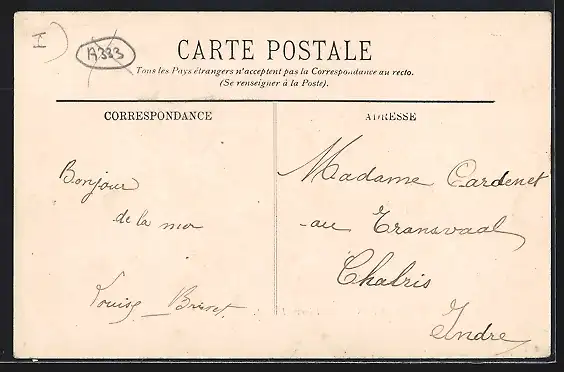 I
A333
CARTE POSTALE
Tous les Pays étrangers n'acceptent pas la Correspondance au recto.
(Se renseigner à la Poste).
CORRESPONDANCE
ADRESSE
Bonjour
de la mer
Louise
Madame Cardenet
au Transvaal
Chabris
Indre